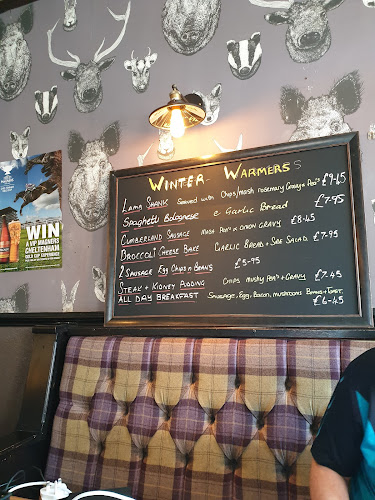 WINTER WARMERS
LAMB SHANK SERVED WITH CHIPS/MASH ROSEMARY GRAVY + PEAS £9.45
SPAGHETTI BOLOGNESE e GARLIC BREAD £7.95
CUMBERLAND SAUSAGE MASH PEAS + ONION GRAVY £8.45
BROCCOLI CHEESE BAKE GARLIC BREAD + SIDE SALAD £7.95
2 SAUSAGE EGG CHIPS n BEANS £5-95
STEAK + KIDNEY PUDDING CHIPS MUSHY PEAS + GRAVY £7.45
ALL DAY BREAKFAST SAUSAGE, EGG, BACON, MUSHROOMS BEANS + TOAST £6-45
WIN
A VIP MAGNERS
CHELTENHAM
GOLD CUP EXPERIENCE